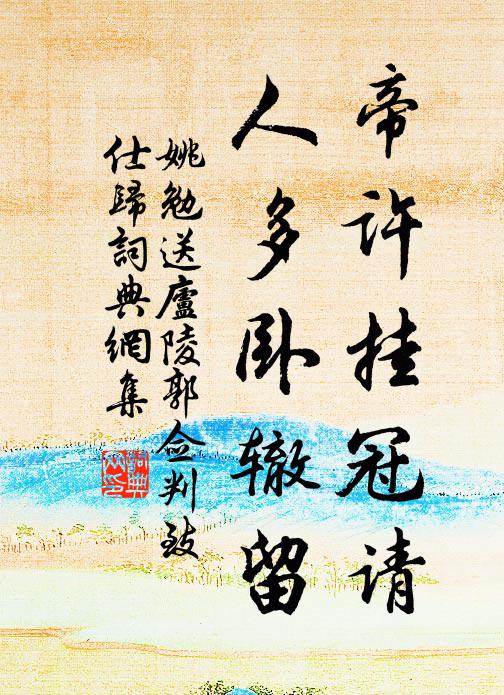 帝许挂冠请
人多卧辙留
姚勉送廬陵郭僉判致
仕歸詞典網集